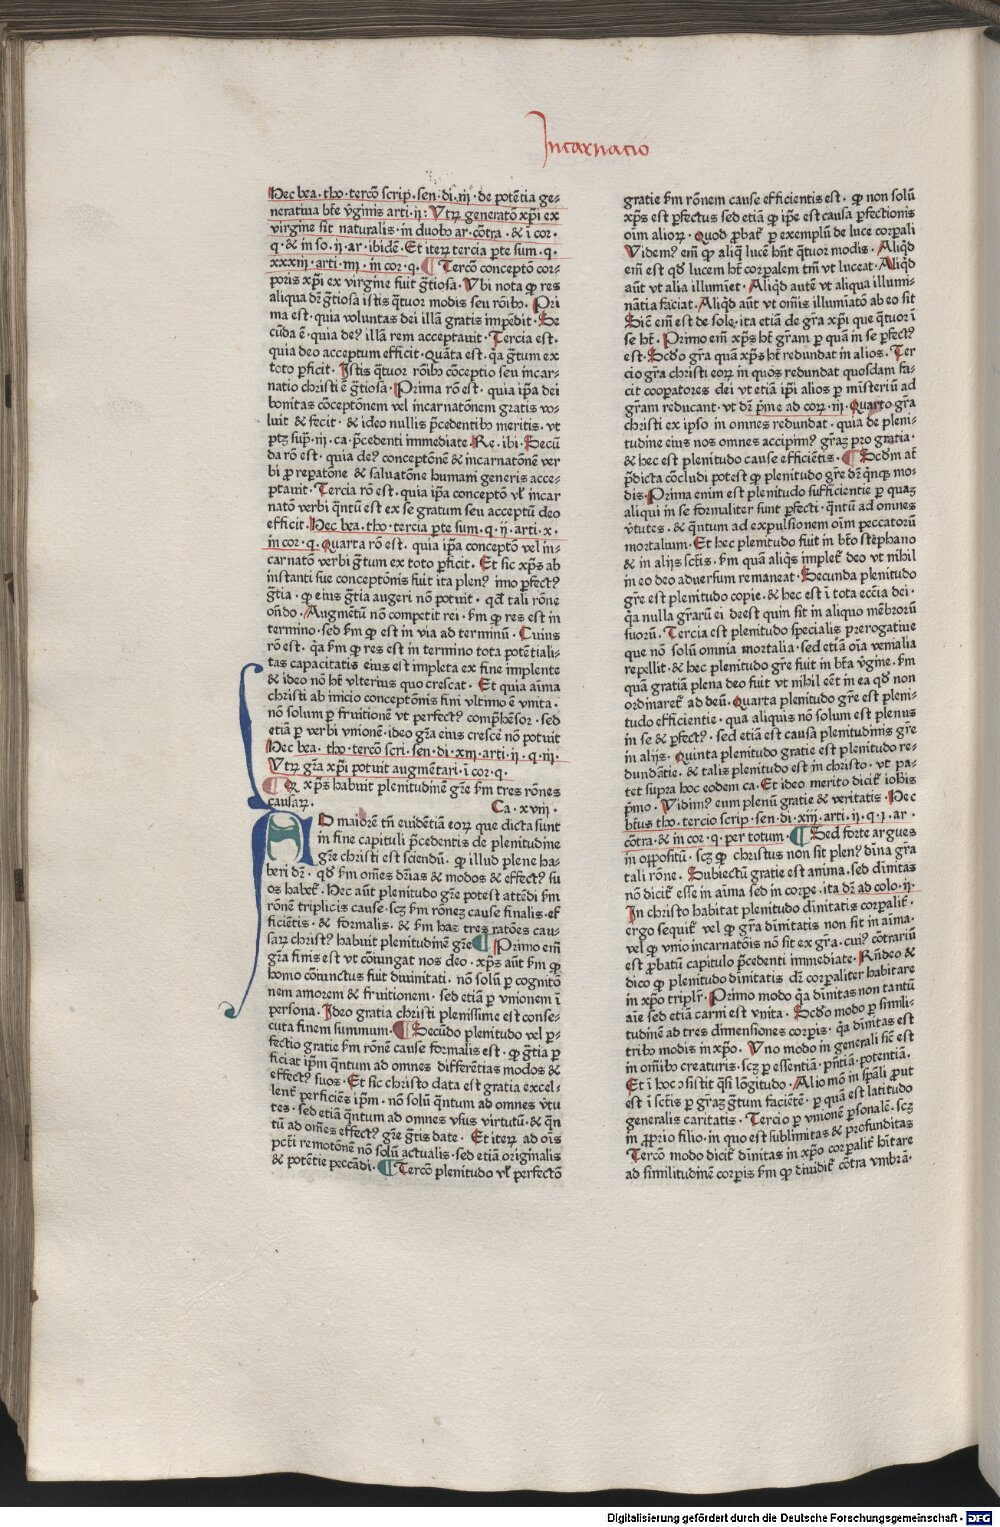 Incarnacio
Hec bea. tho. tercõ scrip̃. sen. di. iij. de potẽtia ge⸗
neratiua bt̃e ṽginis arti. ij: Vtꝝ generatõ xp̃i ex
virgine sit naturalis. in duobꝫ ar. cõtra. & ĩ cor.
q. & in so. ij. ar. ibidẽ. Et iteꝝ tercia p̱te sum. q.
xxxiij. arti. iiij. in cor. q. ¶ Tercõ conceptõ cor⸗
poris xp̃i ex virgine fuit g̃tiosa. Vbi nota ꝙ res
aliqua dr̃ g̃tiosa istis q̃tuor modis seu rõibꝫ. Pri
ma est. quia voluntas dei illã gratis impẽdit. Se
cũda ẽ. quia deꝰ illã rem acceptauit. Tercia est.
quia deo acceptum efficit. Quãta est. q̃a g̃tum ex
toto ꝑficit. Istis q̃tuor rõibꝫ cõceptio seu incar⸗
natio christi ẽ g̃tiosa. Prima rõ est. quia ip̃a dei
bonitas cõceptõnem vel incarnatõnem gratis vo⸗
luit & fecit. & ideo nullis p̃cedentibꝫ meritis. vt
ptꝫ sup̃. iij. ca. p̃cedenti immediate. Re. ibi. Secũ
da rõ est. quia deꝰ conceptõnẽ & incarnatõnẽ ver
bi ꝑ repatõne & saluatõne humani generis acce⸗
ptauit. Tercia rõ est. quia ip̃a conceptõ vl̃ incar
natõ verbi q̃ntũ est ex se gratum seu acceptũ deo
efficit. Hec bea. tho. tercia p̱te sum. q. ij. arti. x.
in cor. q. Quarta rõ est. quia ip̃a conceptõ vel in⸗
carnatõ verbi g̃tum ex toto ꝑficit. Et sic xp̃s ab
instanti sue conceptõnis fuit ita plenꝰ imo ꝑfectꝰ
g̃tia. ꝙ eius g̃tia augeri nõ potuit. qd̃ tali rõne
oñdo. Augmẽtũ nõ competit rei. ẜm ꝙ res est in
termino. sed ẜm ꝙ est in via ad terminũ. Cuius
rõ est. q̃a ẜm ꝙ res est in termino tota potẽtiali⸗
tas capacitatis eius est impleta ex fine implente
& ideo nõ hꝫ vlterius quo crescat. Et quia aĩma
christi ab inicio conceptõnis fini vltimo ẽ vnita.
nõ solum ꝑ fruitionẽ vt perfectꝰ comp̃hẽsor. sed
etiã ꝑ verbi vnionẽ. ideo gr̃a eius crescẽ nõ potuit
Hec bea. tho. tercõ scri. sen. di. xiij. arti. ij. q. iij.
Vtꝝ gr̃a xp̃i potuit augmẽtari. ĩ cor. q.
¶ Q xp̃s habuit plenitudinẽ gr̃e ẜm tres rõnes
causaꝝ. Ca. xviij.
AD maiorẽ tñ euidẽtiã eoꝝ que dicta sunt
in fine capituli p̃cedentis de plenitudine
gr̃e christi est sciendũ. ꝙ illud plene ha⸗
beri dr̃. qd̃ ẜm om̃es dr̃ias & modos & effectꝰ su
os habet̃. Hec aũt plenitudo gr̃e potest attẽdi ẜm
rõnẽ triplicis cause. scꝫ ẜm rõneꝫ cause finalis. ef
ficiẽtis. & formalis. & ẜm has tres ratões cau⸗
saꝝ christꝰ habuit plenitudinẽ gr̃e ¶ Primo em̃
gr̃a finis est vt cõiungat nos deo. xp̃s aũt ẜm ꝙ
homo cõiunctus fuit diuinitati. nõ solũ ꝑ cognitõ
nem amorem & fruitionem. sed etiã ꝑ vnionem ĩ
persona. Ideo gratia christi plenissime est conse⸗
cuta finem summum. ¶ Secũdo plenitudo vel ꝑ⸗
fectio gratie ẜm rõnẽ cause formalis est. ꝙ g̃tia ꝑ
ficiat ip̃m q̃ntum ad omnes differẽtias modos &
effectꝰ suos. Et sic christo data est gratia excel⸗
lent̃ perficiẽs ip̃m. nõ solũ q̃ntum ad omnes ṽtu
tes. sed etiã q̃ntum ad omnes vsus virtutũ. & q̃n
tũ ad om̃es effectꝰ gr̃e g̃tis date. Et iteꝝ ad oĩs
pct̃i remotõnẽ nõ solũ actualis. sed etiã originalis
& potẽtie peccãdi. ¶ Tercõ plenitudo vl̃ perfectõ
gratie ẜm rõnem cause efficientis est. ꝙ non solũ
xp̃s est ꝑfectus sed etiã ꝙ ip̃e est causa ꝑfectionis
oĩm alioꝝ. Quod ꝓbat̃ ꝑ exemplũ de luce corꝑali
Videmꝰ em̃ ꝙ aliq̃ lucẽ hñt q̃tuor modis. Aliq̃d
em̃ est qd̃ lucem hꝫ corꝑalem tm̃ vt luceat. Aliq̃d
aũt vt alia illumiet. Aliq̃d autẽ vt aliqua illumi⸗
nãtia faciat. Aliq̃d aũt vt om̃is illumiatõ ab eo sit
Sicẽ em̃ est de sole. ita etiã de gr̃a xp̃i que q̃tuor ĩ
se hꝫ. Primo em̃ xp̃s hꝫ gr̃am ꝑ quã in se ꝑfectꝰ
est. Scd̃o gr̃a quã xp̃s hꝫ redundat in alios. Ter
cio gr̃a christi eoꝝ in quos redundat quosdam fa⸗
cit cooꝑatores dei vt etiã ip̃i alios ꝑ misteriũ ad
gr̃am reducant. vt dr̃ p̃me ad coꝝ. iij. Quarto gr̃a
christi ex ipso in omnes redundat. quia de pleni⸗
tudine eius nos omnes accipimꝰ gr̃aꝫ pro gratia.
& hec est plenitudo cause efficiẽtis. ¶ Scd̃m at̃
p̃dicta cõcludi potest ꝙ plenitudo gr̃e dr̃ q̃nqꝫ mo⸗
dis. Prima enim est plenitudo sufficientie ꝑ quaꝫ
aliqui in se formaliter sunt ꝑfecti. q̃ntũ ad omnes
ṽtutes. & q̃ntum ad expulsionem oĩm peccatorũ
mortalium. Et hec plenitudo fuit in bt̃o stephano
& in alijs sct̃is. ẜm quã aliq̃s implet̃ deo vt nihil
in eo deo aduersum remaneat. Secunda plenitudo
gr̃e est plenitudo copie. & hec est ĩ tota ecc̃ia dei.
q̃a nulla gr̃arũ ei deest quin sit in aliquo mẽbrorũ
suorũ. Tercia est plenitudo specialis prerogatiue
que nõ solũ omnia mortalia. sed etiã oĩa venialia
repellit. & hec plenitudo gr̃e fuit in bt̃a ṽgine. ẜm
quã gratiã plena deo fuit vt nihil eẽt in ea qd̃ non
ordinaret̃ ad deũ. Quarta plenitudo gr̃e est pleni⸗
tudo efficientie. qua aliquis nõ solum est plenus
in se & ꝑfectꝰ. sed etiã est causa plenitudinis gr̃e
in alijs. Quinta plenitudo gratie est plenitudo re⸗
dundãtie. & talis plenitudo est in christo. vt pa⸗
tet supra hoc eodem ca. Et ideo merito dicit̃ iohis
p̃mo. Vidimꝰ eum plenũ gratie & veritatis. Hec
bt̃us tho. tercio scrip. sen. di. xiij. arti. ij. q. j. ar.
cõtra. & in cor. q. per totum. ¶ Sed forte argues
in oppositũ. scꝫ ꝙ christus non sit plenꝰ diuĩa gr̃a
tali rõne. Subiectũ gratie est anima. sed diuĩtas
nõ dicit̃ esse in aĩma sed in corpe. ita dr̃ ad colo. ij.
In christo habitat plenitudo diuĩtatis corꝑalit̃.
ergo sequit̃ vel ꝙ gr̃a diuĩtatis non sit in aĩma.
vel ꝙ vnio incarnatõis nõ sit ex gr̃a. cuiꝰ cõtrariũ
est ꝓbatũ capitulo p̃cedenti immediate. Rñdeo &
dico ꝙ plenitudo diuĩtatis dr̃ corꝑaliter habitare
in xp̃o triplr̃. Primo modo q̃a diuĩtas non tantũ
aĩe sed etiam carni est vnita. Scd̃o modo ꝑ simili⸗
tudinẽ ad tres dimensiones corꝑis. q̃a diuĩtas est
tribꝫ modis in xp̃o. Vno modo in generali sic̃ est
in om̃ibꝫ creaturis. scꝫ ꝑ essentiã. p̃ntiã. potentiã.
Et ĩ hoc ɔsistit q̃si lõgitudo. Alio mõ in sp̃ali ꝓut
est ĩ sct̃is ꝑ gr̃aꝫ g̃tum faciẽtẽ. ꝑ quã est latitudo
generalis caritatis. Tercio ꝑ vnionẽ ꝑsonalẽ. scꝫ
in ꝓprio filio. in quo est sublimitas & profunditas
Tercõ modo dicit̃ diuĩtas in xp̃o corꝑalit̃ hĩtare
ad similitudinẽ corꝑis ẜm ꝙ diuidit̃ cõtra vmbrã.
Digitalisierung gefördert durch die Deutsche Forschungsgemeinschaft - DFG